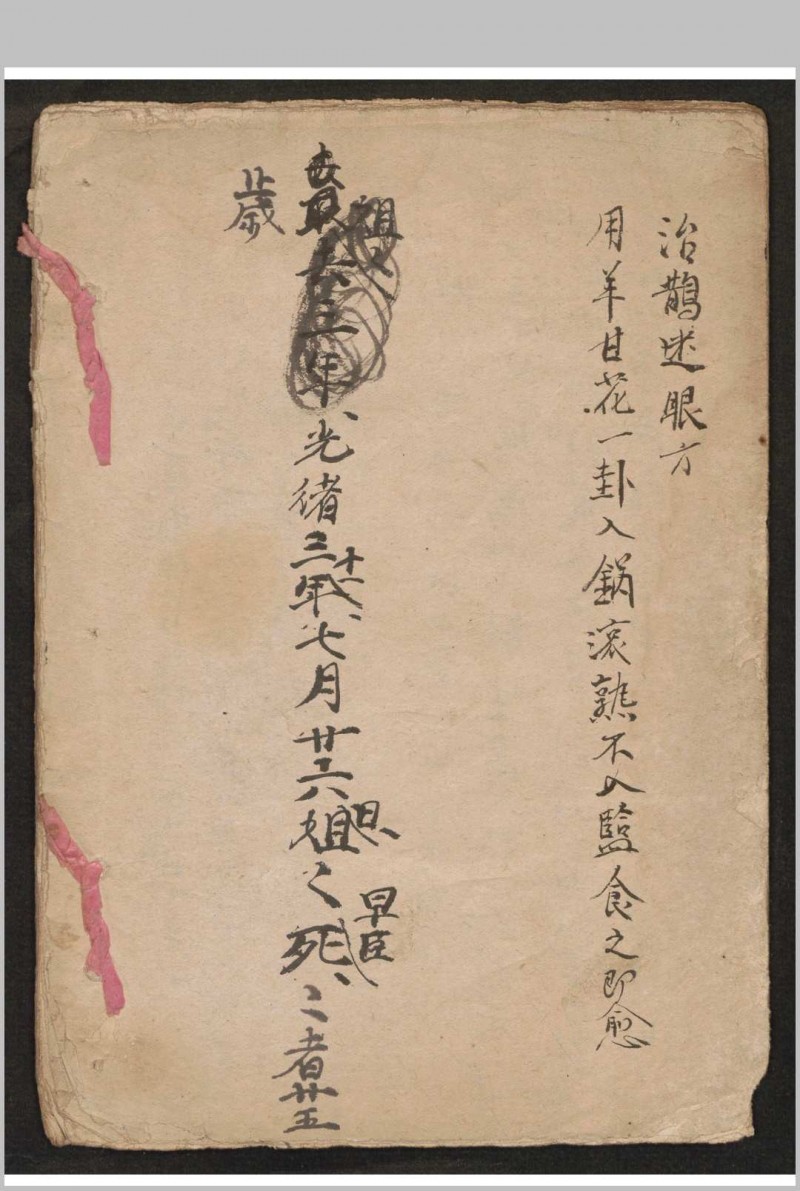 治鵲迷眼方
用羊甘花一卦入鍋滚熟不入監食之即愈
祖父
三年光緒三十一年七月廿六日姐〻早臣死〻者廿五
歲